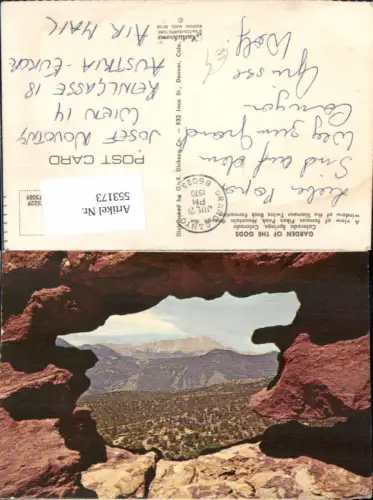 GARDEN OF THE GODS
Colorado Springs, Colorado
A view of famous Pikes Peak Mountain through the
window of the Siamese Twins Rock Formation
Lieber Papa!
Sind auf dem
Weg zum Grand
Canyon
Grüsse
Wolf.
GRAND CANYON
JUL 21
PM
1970
86023
Distributed by
Co. — 922 Inca St., Denver, Colo.
POST CARD
JOSEF NOVOTNY
WIEN 14
REINLGASSE 18
AUSTRIA - EUROPE
AIR MAIL
Artikel Nr.
553173